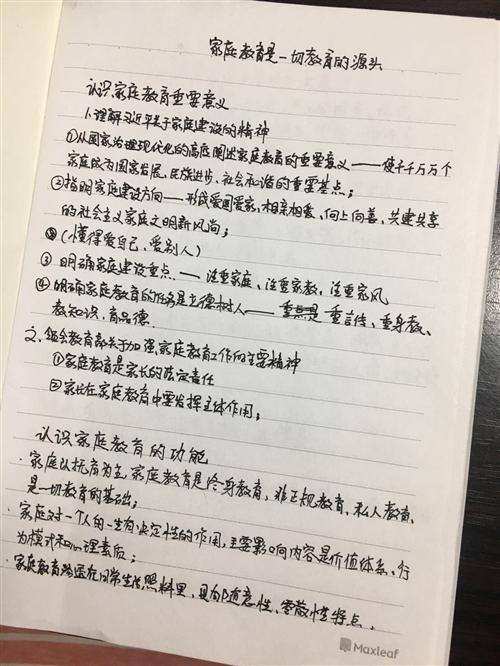 家庭教育是一切教育的源头
认识家庭教育重要意义
1.理解习近平关于家庭建设的精神
①从国家治理现代化的高度阐述家庭教育的重要意义——使千千万万个
家庭成为国家发展、民族进步、社会和谐的重要基点；
②指明家庭建设方向——形成爱国爱家、相亲相爱、向上向善、共建共享
的社会主义家庭文明新风尚；
（懂得爱自己、爱别人）
③明确家庭建设重点——注重家庭、注重家教、注重家风
④明确家庭教育的任务是立德树人——重言传、重身教、
教知识、育品德.
2.领会教育部关于加强家庭教育工作的主要精神
①家庭教育是家长的法定责任
②家长在家庭教育中要发挥主体作用；
认识家庭教育的功能
·家庭以抚育为主，家庭教育是终身教育，非正规教育，私人教育，
是一切教育的基础；
·家庭对一个人的一生有决定性的作用，主要影响内容是价值体系、行
为模式和心理素质；
·家庭教育渗透在日常生活照料里，具有随意性、零散性特点.
Maxleaf